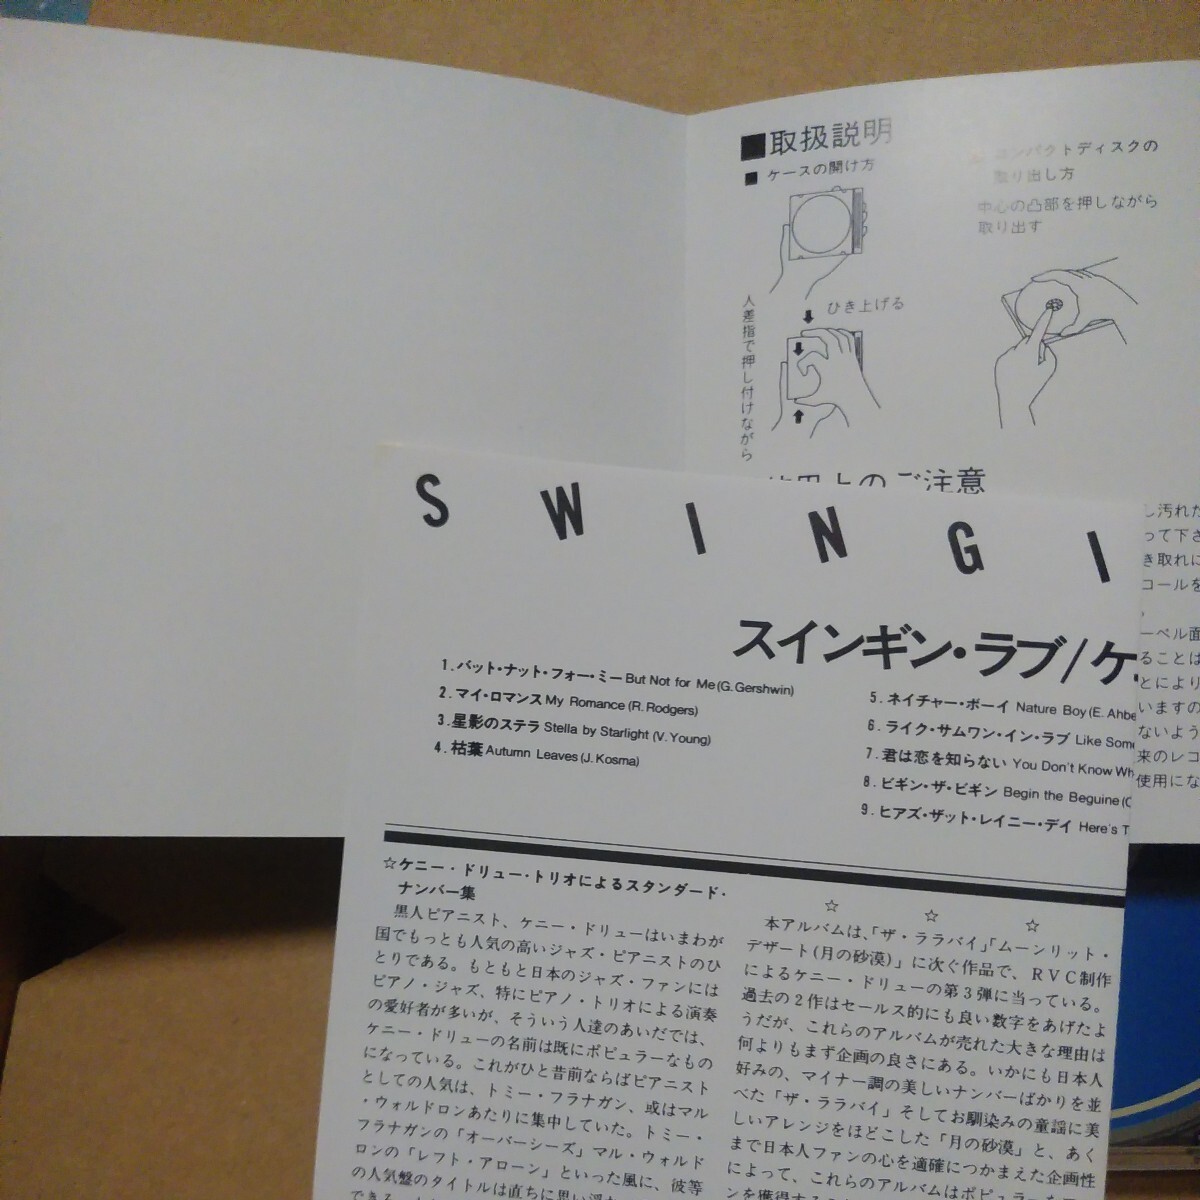 ■取扱説明
■ ケースの開け方
コンパクトディスクの
取り出し方
中心の凸部を押しながら
取り出す
ひき上げる
人差指で押し付けながら
のご注意
し汚れた
って下さ
き取れに
コールを
ーベル面
ることは
とにより
いますの
ないよう
来のレコ
使用にな
SWINGI
スインギン・ラブ/ケ
1.バット・ナット・フォー・ミー But Not for Me(G.Gershwin)
2.マイ・ロマンス My Romance(R.Rodgers)
3.星影のステラ Stella by Starlight(V.Young)
4.枯葉 Autumn Leaves(J.Kosma)
5.ネイチャー・ボーイ Nature Boy(E.Ahbe
6.ライク・サムワン・イン・ラブ Like Som
7.君は恋を知らない You Don't Know Wh
8.ビギン・ザ・ビギン Begin the Beguine(C
9.ヒアズ・ザット・レイニー・デイ Here's T
☆ケニー・ドリュー・トリオによるスタンダード・
ナンバー集
黒人ピアニスト、ケニー・ドリューはいまわが
国でもっとも人気の高いジャズ・ピアニストのひ
とりである。もともと日本のジャズ・ファンには
ピアノ・ジャズ、特にピアノ・トリオによる演奏
の愛好者が多いが、そういう人達のあいだでは、
ケニー・ドリューの名前は既にポピュラーなもの
になっている。これがひと昔前ならばピアニスト
としての人気は、トミー・フラナガン、或はマル
・ウォルドロンあたりに集中していた。トミー・
フラナガンの「オーバーシーズ」マル・ウォルド
ロンの「レフト・アローン」といった風に、彼等
の人気盤のタイトルは直ちに思い浮
☆ ☆ ☆
本アルバムは、「ザ・ララバイ」「ムーンリット・
デザート(月の砂漠)」に次ぐ作品で、RVC制作
によるケニー・ドリューの第3弾に当っている。
過去の2作はセールス的にも良い数字をあげたよ
うだが、これらのアルバムが売れた大きな理由は
何よりもまず企画の良さにある。いかにも日本人
好みの、マイナー調の美しいナンバーばかりを並
べた「ザ・ララバイ」そしてお馴染みの童謡に美
しいアレンジをほどこした「月の砂漠」と、あく
まで日本人ファンの心を適確につかまえた企画性
によって、これらのアルバムはポピュラー